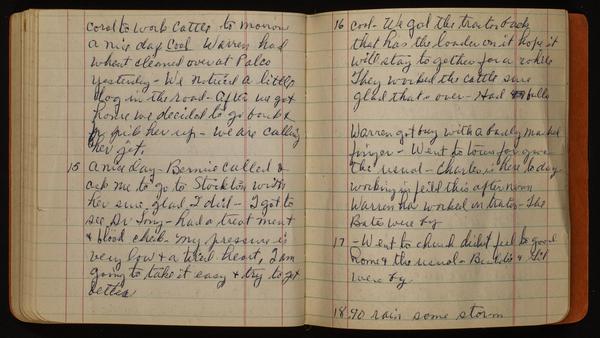 coral to work cattle to morrow
a nice day Cool Warren had
wheat cleaned over at Palco
yesterday - We noticed a little
dog in the road - After we got
home we decided to go back &
pick her up - we are calling
her jet.
15 a nice day - Bernie called &
ask me to go to Stockton with
her sure glad I did - I got to
see Dr Tony - had a treatment
& blood check - my pressure is
very low & a tired heart, I am
going to take it easy & try to get
better
16 cool - We got the tractor back
that has the loader on it hope it
will stay to gether for a while
They worked the cattle sure
glad that is over - Had bulls
Warren got by with a badly mashed
finger - Went to town for groc
the usual - Charles is here to day
working in feild this after noon
Warren has worked on tractor - The
Bates were by
17 - Went to church didn't feel to good
home & the usual - &
were by
18 90 rain some storm